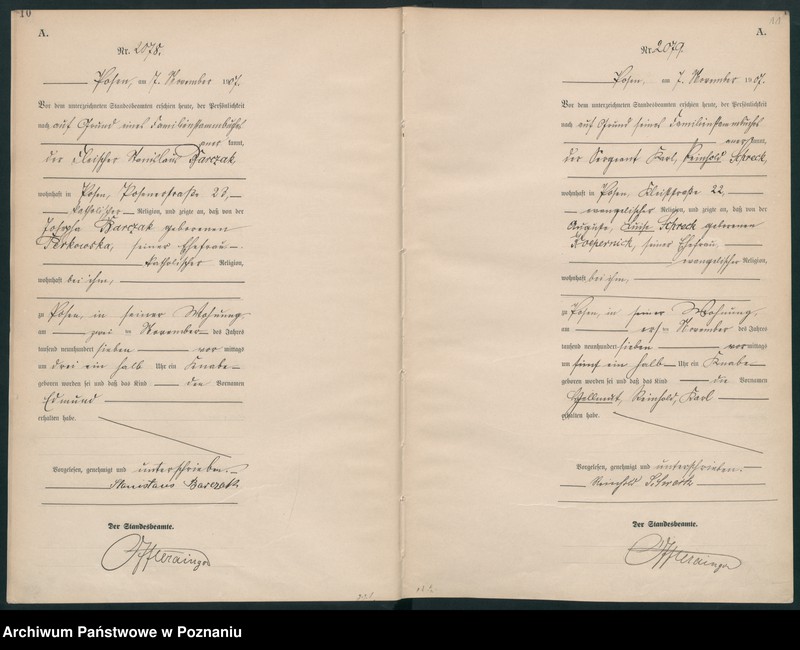 10
A.
Nr. 2078.
Posen, am 7. November 1907.
Vor dem unterzeichneten Standesbeamten erschien heute, der Persönlichkeit
nach auf Grund eines Familienstammbuches
anerkannt,
der Fleischer Stanislaus Barczak
wohnhaft in Posen, Posenerstraße 23,
katholischer Religion, und zeigte an, daß von der
Josepha Barczak geborenen
seiner Ehefrau
katholischer Religion,
wohnhaft bei ihm,
zu Posen, in seiner Wohnung
am zwei ten November des Jahres
tausend neunhundert sieben vor mittags
um drei ein halb Uhr ein Knabe
geboren worden sei und daß das Kind die Vornamen
Edmund
erhalten habe.
Vorgelesen, genehmigt und unterschrieben.
Stanislaus Barczak
Der Standesbeamte.
11
A.
Nr. 2079.
Posen, am 7. November 1907.
Vor dem unterzeichneten Standesbeamten erschien heute, der Persönlichkeit
nach auf Grund seines Familienstammbuches
anerkannt,
der Sergeant Karl, Reinhold Schreck
wohnhaft in Posen, Kleiststraße 22,
evangelischer Religion, und zeigte an, daß von der
Auguste, Luise Schreck geborenen
Koepernick, seiner Ehefrau,
evangelischer Religion,
wohnhaft bei ihm,
zu Posen, in seiner Wohnung,
am ers ten November des Jahres
tausend neunhundert sieben vor mittags
um fünf ein halb Uhr ein Knabe
geboren worden sei und daß das Kind die Vornamen
Hellmut, Reinhold, Karl
erhalten habe.
Vorgelesen, genehmigt und unterschrieben.
Reinhold Schreck
Der Standesbeamte.
Archiwum Państwowe w Poznaniu